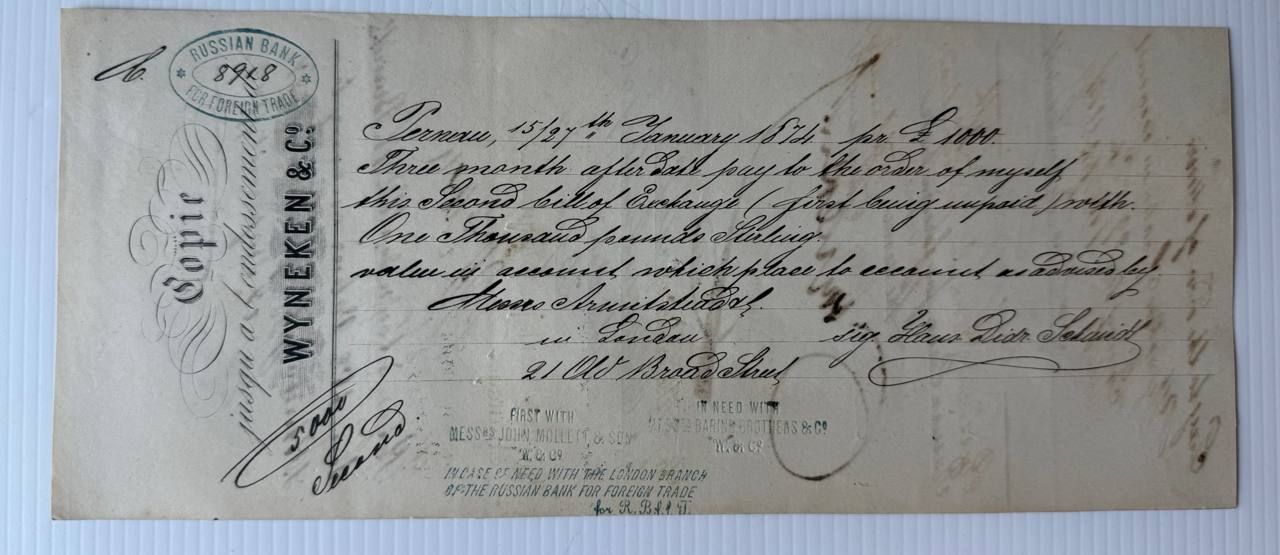 RUSSIAN BANK
8918
FOR FOREIGN TRADE
Copie
jusqu'à l'endossement
WYNEKEN & Cº
Pernau, 15/27th January 1874. pr. £ 1000.
Three month after date pay to the order of myself
this Second bill of Exchange (first being unpaid) with.
One Thousand pounds Sterling.
value in account which place to account as advised by
Messrs Armitstead &
in London
sig Hans Didr Schmidt
21 Old Broad Street
5000
Second
FIRST WITH
MESSRS JOHN MOLLETT, & SON
W. & Cº
IN NEED WITH
MESSRS BARING BROTHERS & Cº
W. & Cº
IN CASE OF NEED WITH THE LONDON BRANCH
OF THE RUSSIAN BANK FOR FOREIGN TRADE
for R. B. f. f. T.